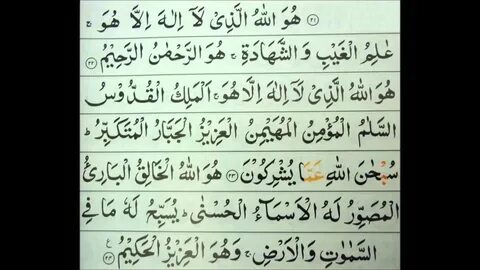 ﴿۲۱﴾ هُوَ اللّٰهُ الَّذِیْ لَاۤ اِلٰهَ اِلَّا هُوَ ۚ
عٰلِمُ الْغَیْبِ وَ الشَّهَادَةِ ۚ هُوَ الرَّحْمٰنُ الرَّحِیْمُ ﴿۲۲﴾
هُوَ اللّٰهُ الَّذِیْ لَاۤ اِلٰهَ اِلَّا هُوَ ۚ اَلْمَلِكُ الْقُدُّوْسُ
السَّلٰمُ الْمُؤْمِنُ الْمُهَیْمِنُ الْعَزِیْزُ الْجَبَّارُ الْمُتَكَبِّرُ ؕ
سُبْحٰنَ اللّٰهِ عَمَّا یُشْرِكُوْنَ ﴿۲۳﴾ هُوَ اللّٰهُ الْخَالِقُ الْبَارِئُ
الْمُصَوِّرُ لَهُ الْاَسْمَآءُ الْحُسْنٰی ؕ یُسَبِّحُ لَهٗ مَا فِی
السَّمٰوٰتِ وَ الْاَرْضِ ۚ وَ هُوَ الْعَزِیْزُ الْحَكِیْمُ ﴿۲۴﴾ ع